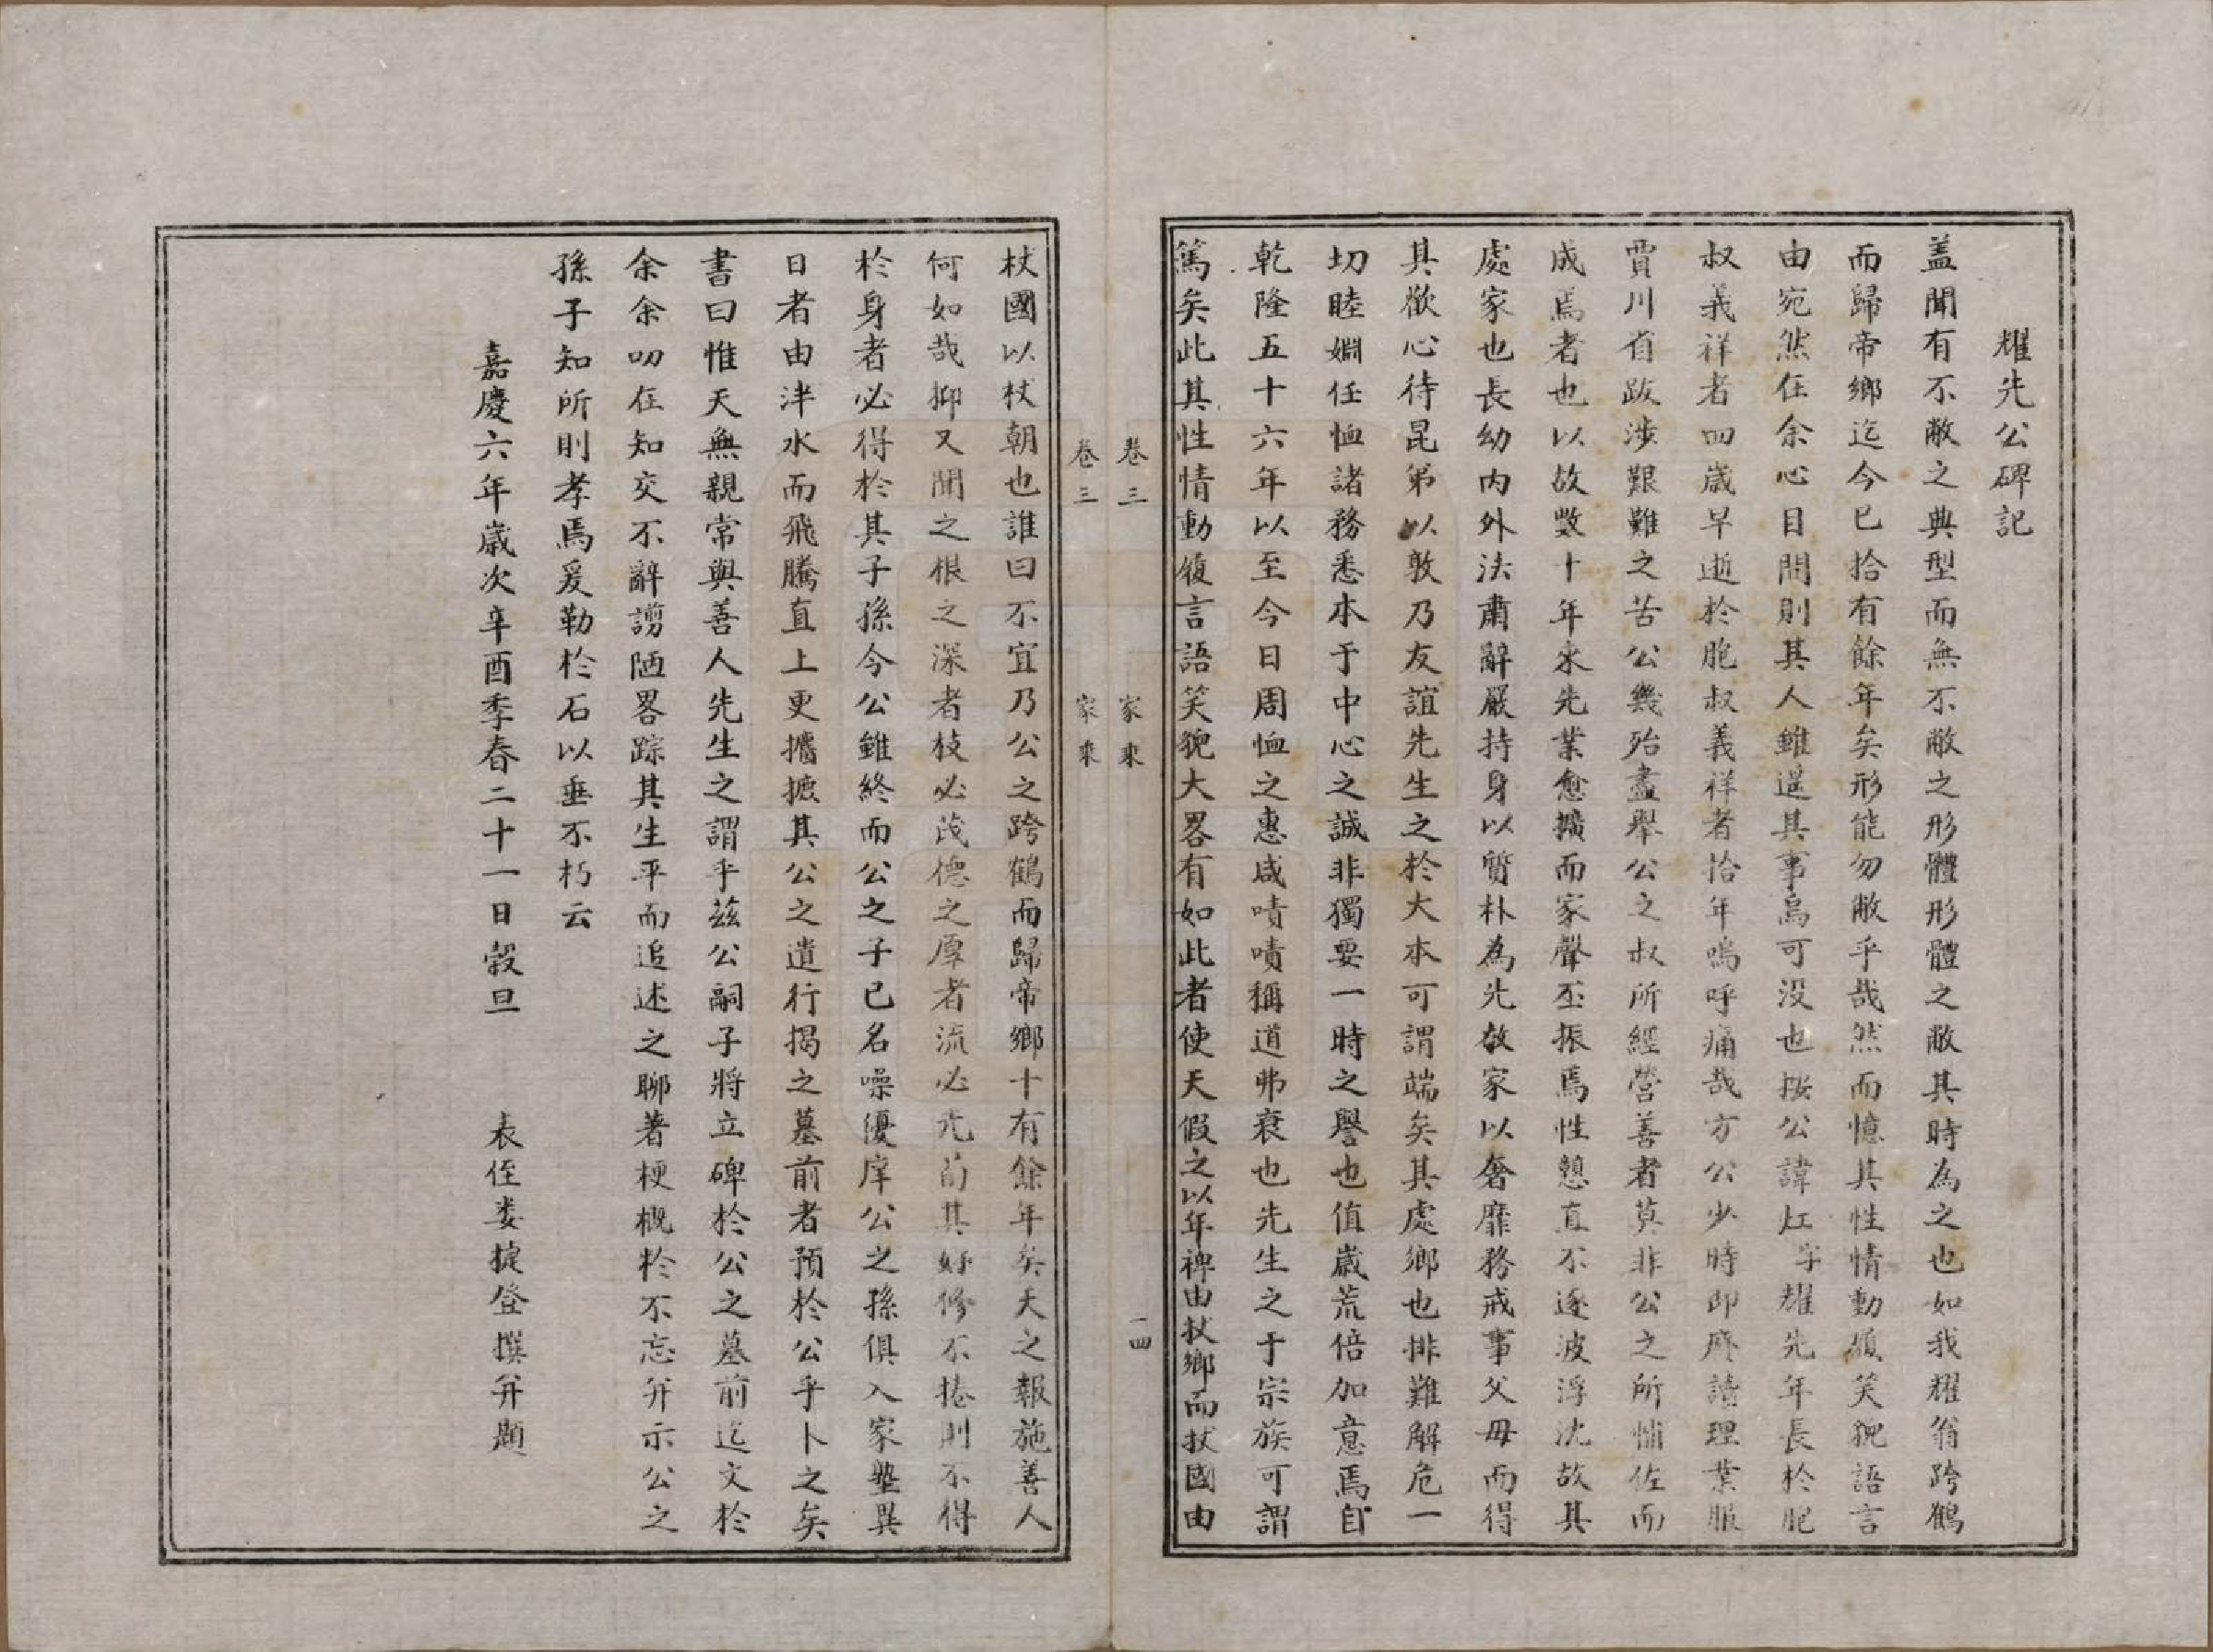 耀先公碑記
盖聞有不敝之典型而無不敝之形體形體之敝其時為之也如我耀翁跨鶴
而歸帝鄉迄今已拾有餘年矣形能勿敝乎哉然而憶其性情動履笑貌語言
由宛然在余心目間則其人雖遥其事烏可没也按公諱灴字耀先年長於胞
叔義祥者四歲早逝於胞叔義祥者拾年嗚呼痛哉方公少時即廢讀理業服
賈川省跋涉艱難之苦公幾殆盡舉公之叔所經營善者莫非公之所備佐而
成焉者也以故數十年來先業愈擴而家聲丕振焉性戇直不逐波浮沈故其
處家也長幼内外法肅辭嚴持身以質朴為先教家以奢靡務戒事父毋而得
其歡心待昆弟以敦乃友誼先生之於大本可謂端矣其處鄉也排難解危一
切睦婣任恤諸務悉本于中心之誠非獨要一時之譽也值歲荒倍加意焉自
乾隆五十六年以至今日周恤之惠咸嘖嘖稱道弗衰也先生之于宗族可謂
篤矣此其性情動履言語笑貌大畧有如此者使天假之以年禆由杖鄉而杖國由
卷三
家來
一四
卷三
家來
杖國以杖朝也誰曰不宜乃公之跨鶴而歸帝鄉十有餘年矣天之報施善人
何如哉抑又聞之根之深者枝必茂德之厚者流必光苟其好修不捲則不得
於身者必得於其子孫今公雖終而公之子已名噪優庠公之孫俱入家塾異
日者由泮水而飛騰直上更攄摭其公之遺行揭之墓前者預於公乎卜之矣
書曰惟天無親常與善人先生之謂乎兹公嗣子將立碑於公之墓前迄文於
余余叨在知交不辭謭陋畧踪其生平而追述之聊著梗概於不忘并示公之
孫子知所則孝焉爰勒於石以垂不朽云
嘉慶六年歲次辛酉季春二十一日穀旦
表侄娄捷登撰并題